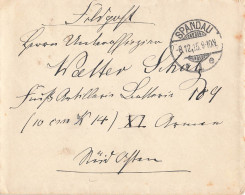 Feldpost
SPANDAU
8.12.15. 9-10V.
e
Herrn Unteroffizier
Walter Scholz
Fuß Artillerie Batterie 189
(10 cm K 14) XI. Armee
Süd Osten